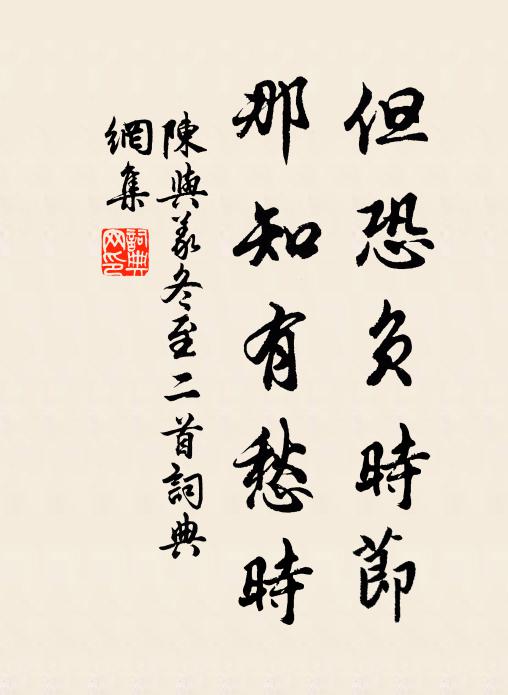 但恐負時節
那知有愁時
陳與義冬至二首詞典
網集
詞典
网印